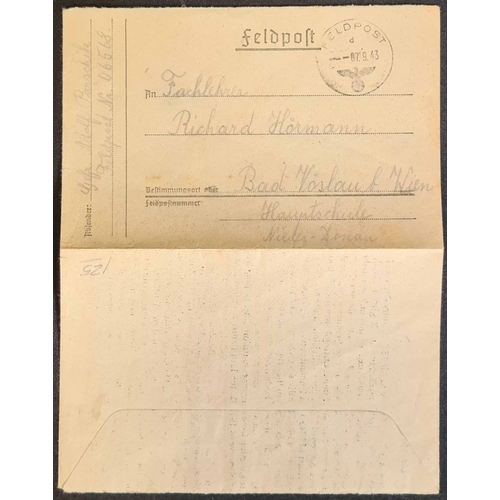 Feldpost
FELDPOST
d
- 07.9.43
An Fachlehrer
Richard Hörmann
Bestimmungsort oder Bad Vöslau b. Wien
Feldpostnummer
Hauptschule
Nieder-Donau
Absender: Gefr.
Feldpost Nr. 06568
125